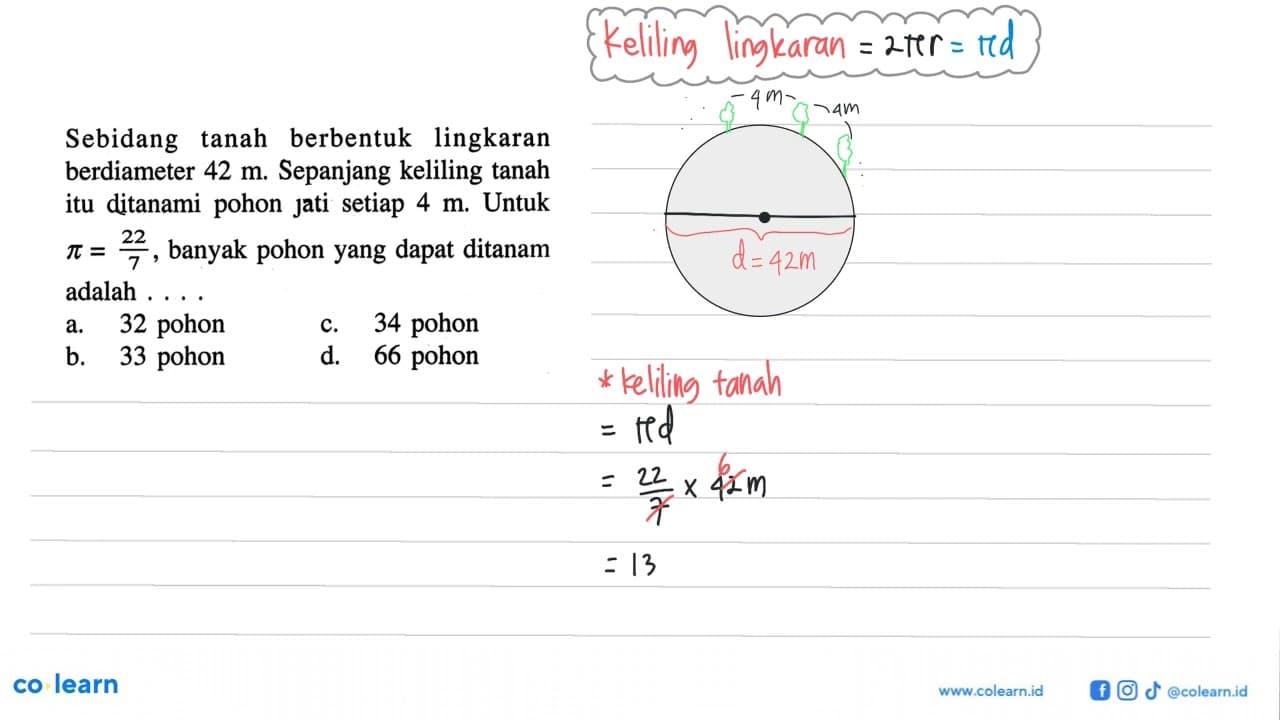 Keliling lingkaran = 2πr = πd
- 4m -
4m
Sebidang tanah berbentuk lingkaran
berdiameter 42 m. Sepanjang keliling tanah
itu ditanami pohon jati setiap 4 m. Untuk
π = 22/7, banyak pohon yang dapat ditanam
adalah . . . .
a. 32 pohon c. 34 pohon
b. 33 pohon d. 66 pohon
d = 42m
* keliling tanah
= πd
= 22/7 x 42m
6
= 13
co learn
www.colearn.id
@colearn.id